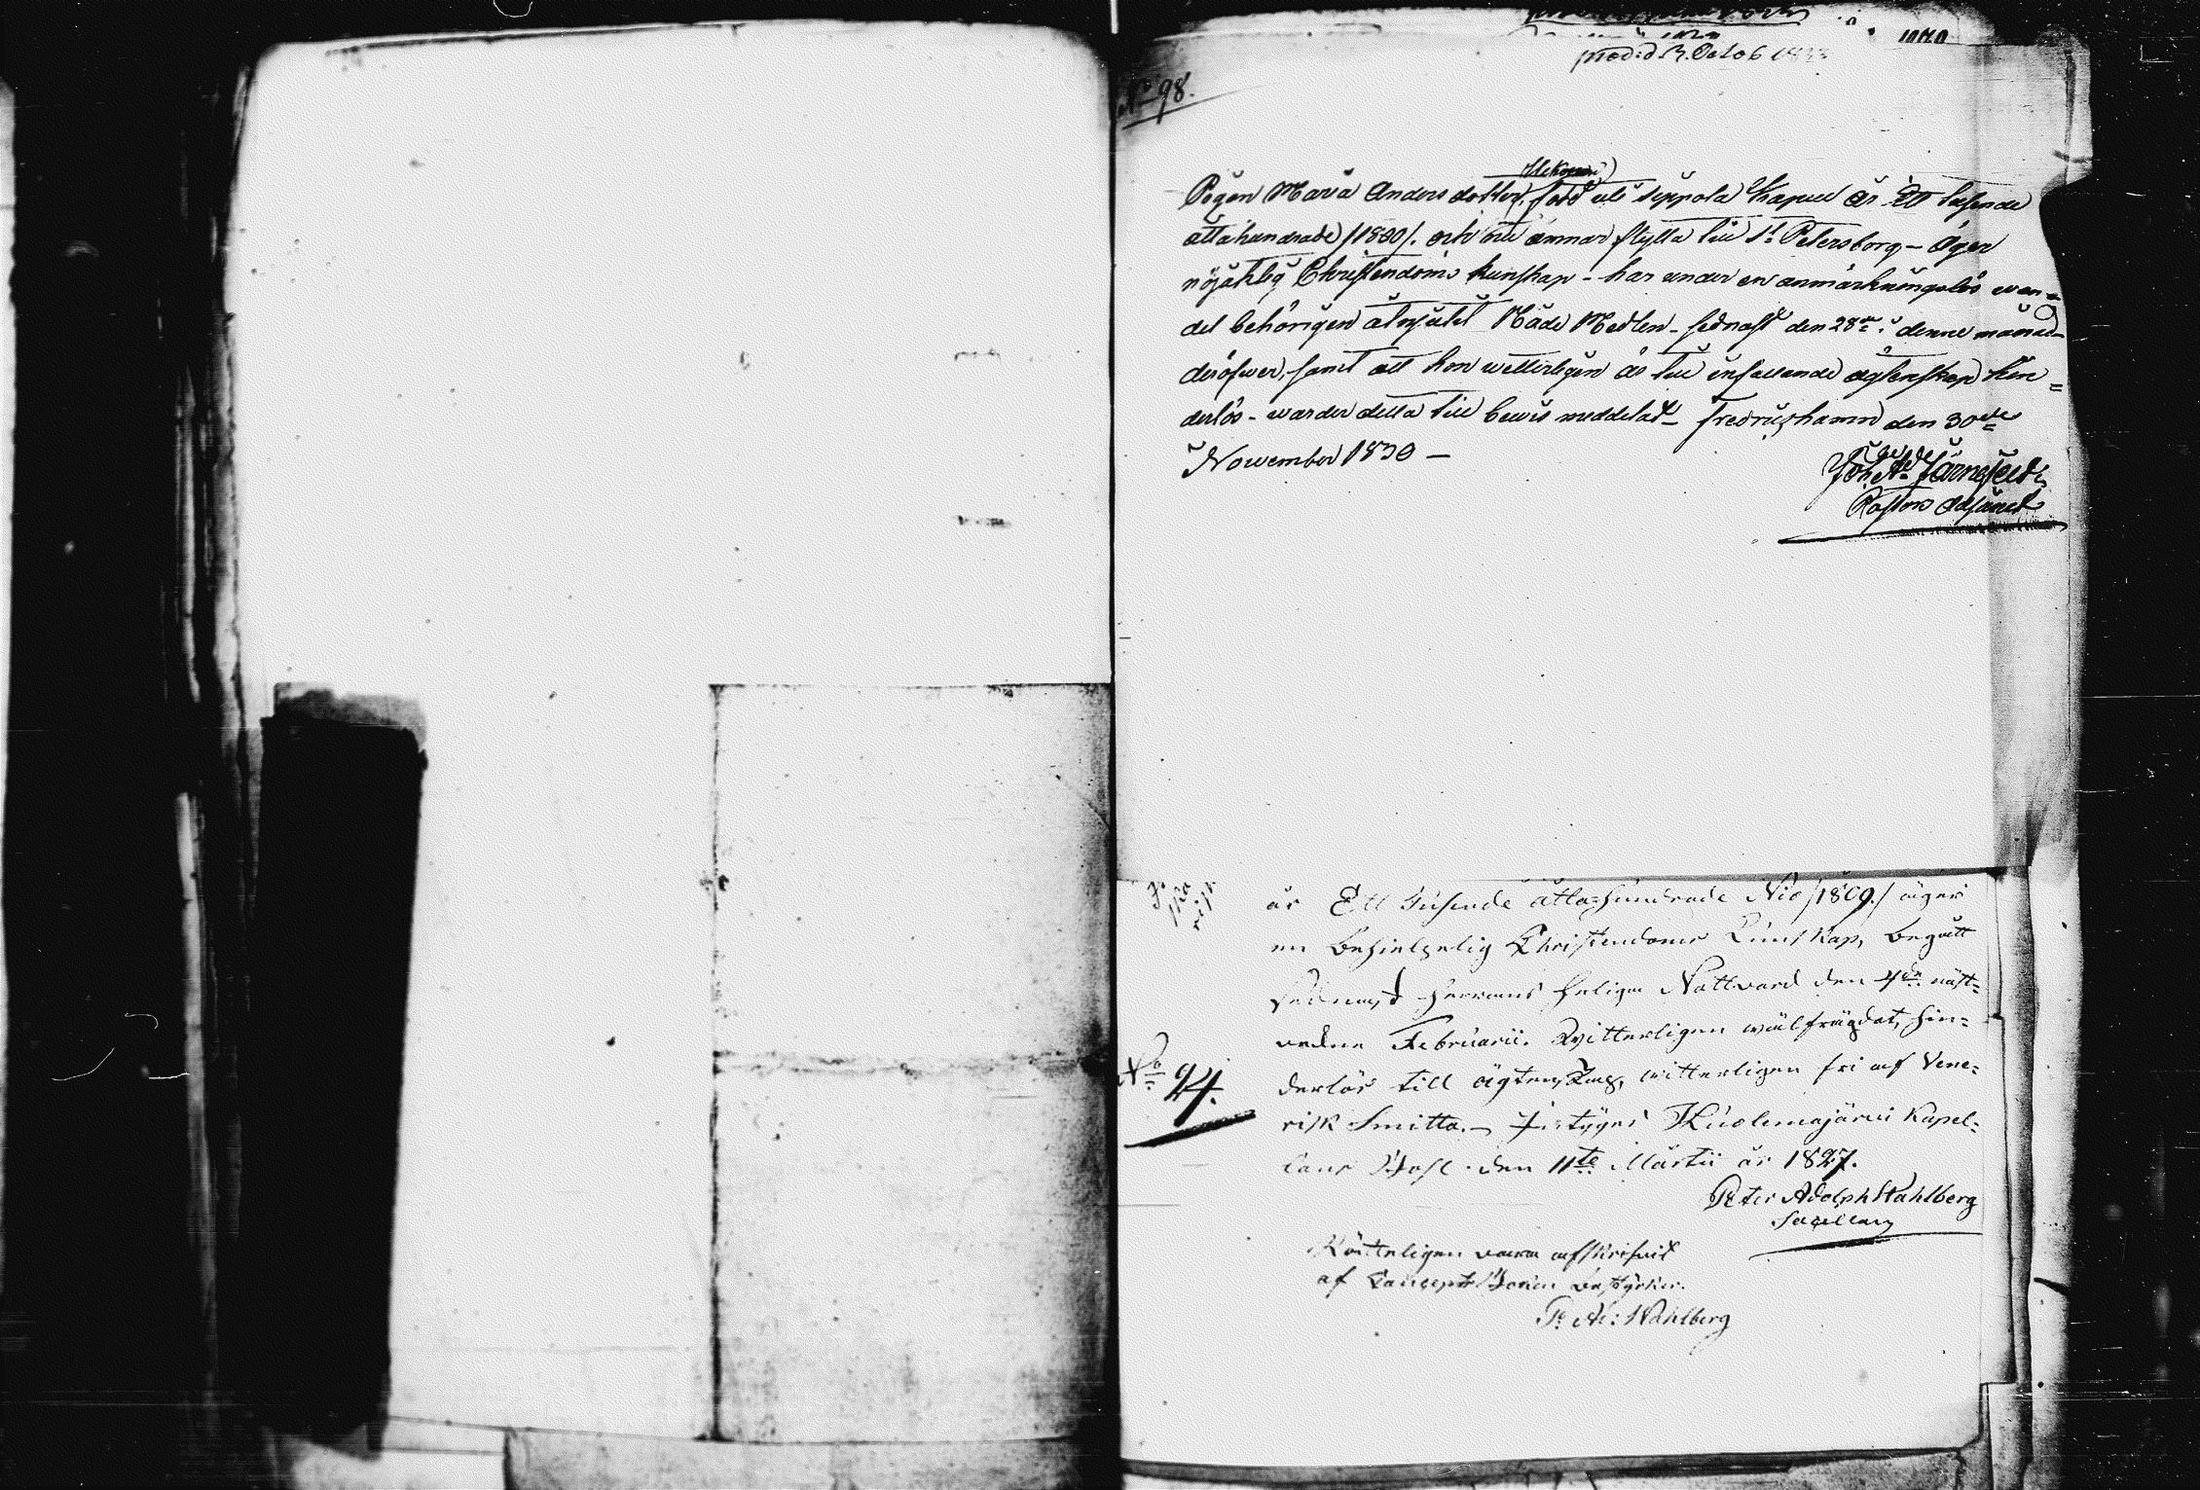 prod: d. 3. Octob 18
No 98.
Pigan Maria Andersdotter, född uti Sippola Kapell år Ett tusende
åttahundrade /1800/. och nu ämnar flytta till St. Petersborg – äger
nöjaktig Christendoms kunskap – har under en anmärkningslös wan=
del behörigen åtnjutit Nåde Medlen – sednast den 28de i denne månad
deröfwer, samt att hon wetterligen är till infallande ägtenskap hin=
derlös – warder detta till bewis meddelat – Fredrikshamn den 30de
November 1830 –
Joh. Ad. Järnefelt
Pastors Adjunct
år Ett Tusende åttahundrade Nio /1809./ äger
en behjelpelig Christendoms Kunskap, begått
sednast Herrans Heliga Nattvard den 4de näst=
vedne Februarii. Witterligen wälfrägdat, hin=
derlös till ägtenskap, witterligen fri af Vene=
risk Smitta. – Intygar Kuolemajärwi Kapel=
lans Bohl den 11te Martii år 1827.
No 94.
Peter Adolph Wahlberg
Sacellan
Rätteligen vara afskrifvit
af Concept Boken bestyrker.
P. Ad: Wahlberg